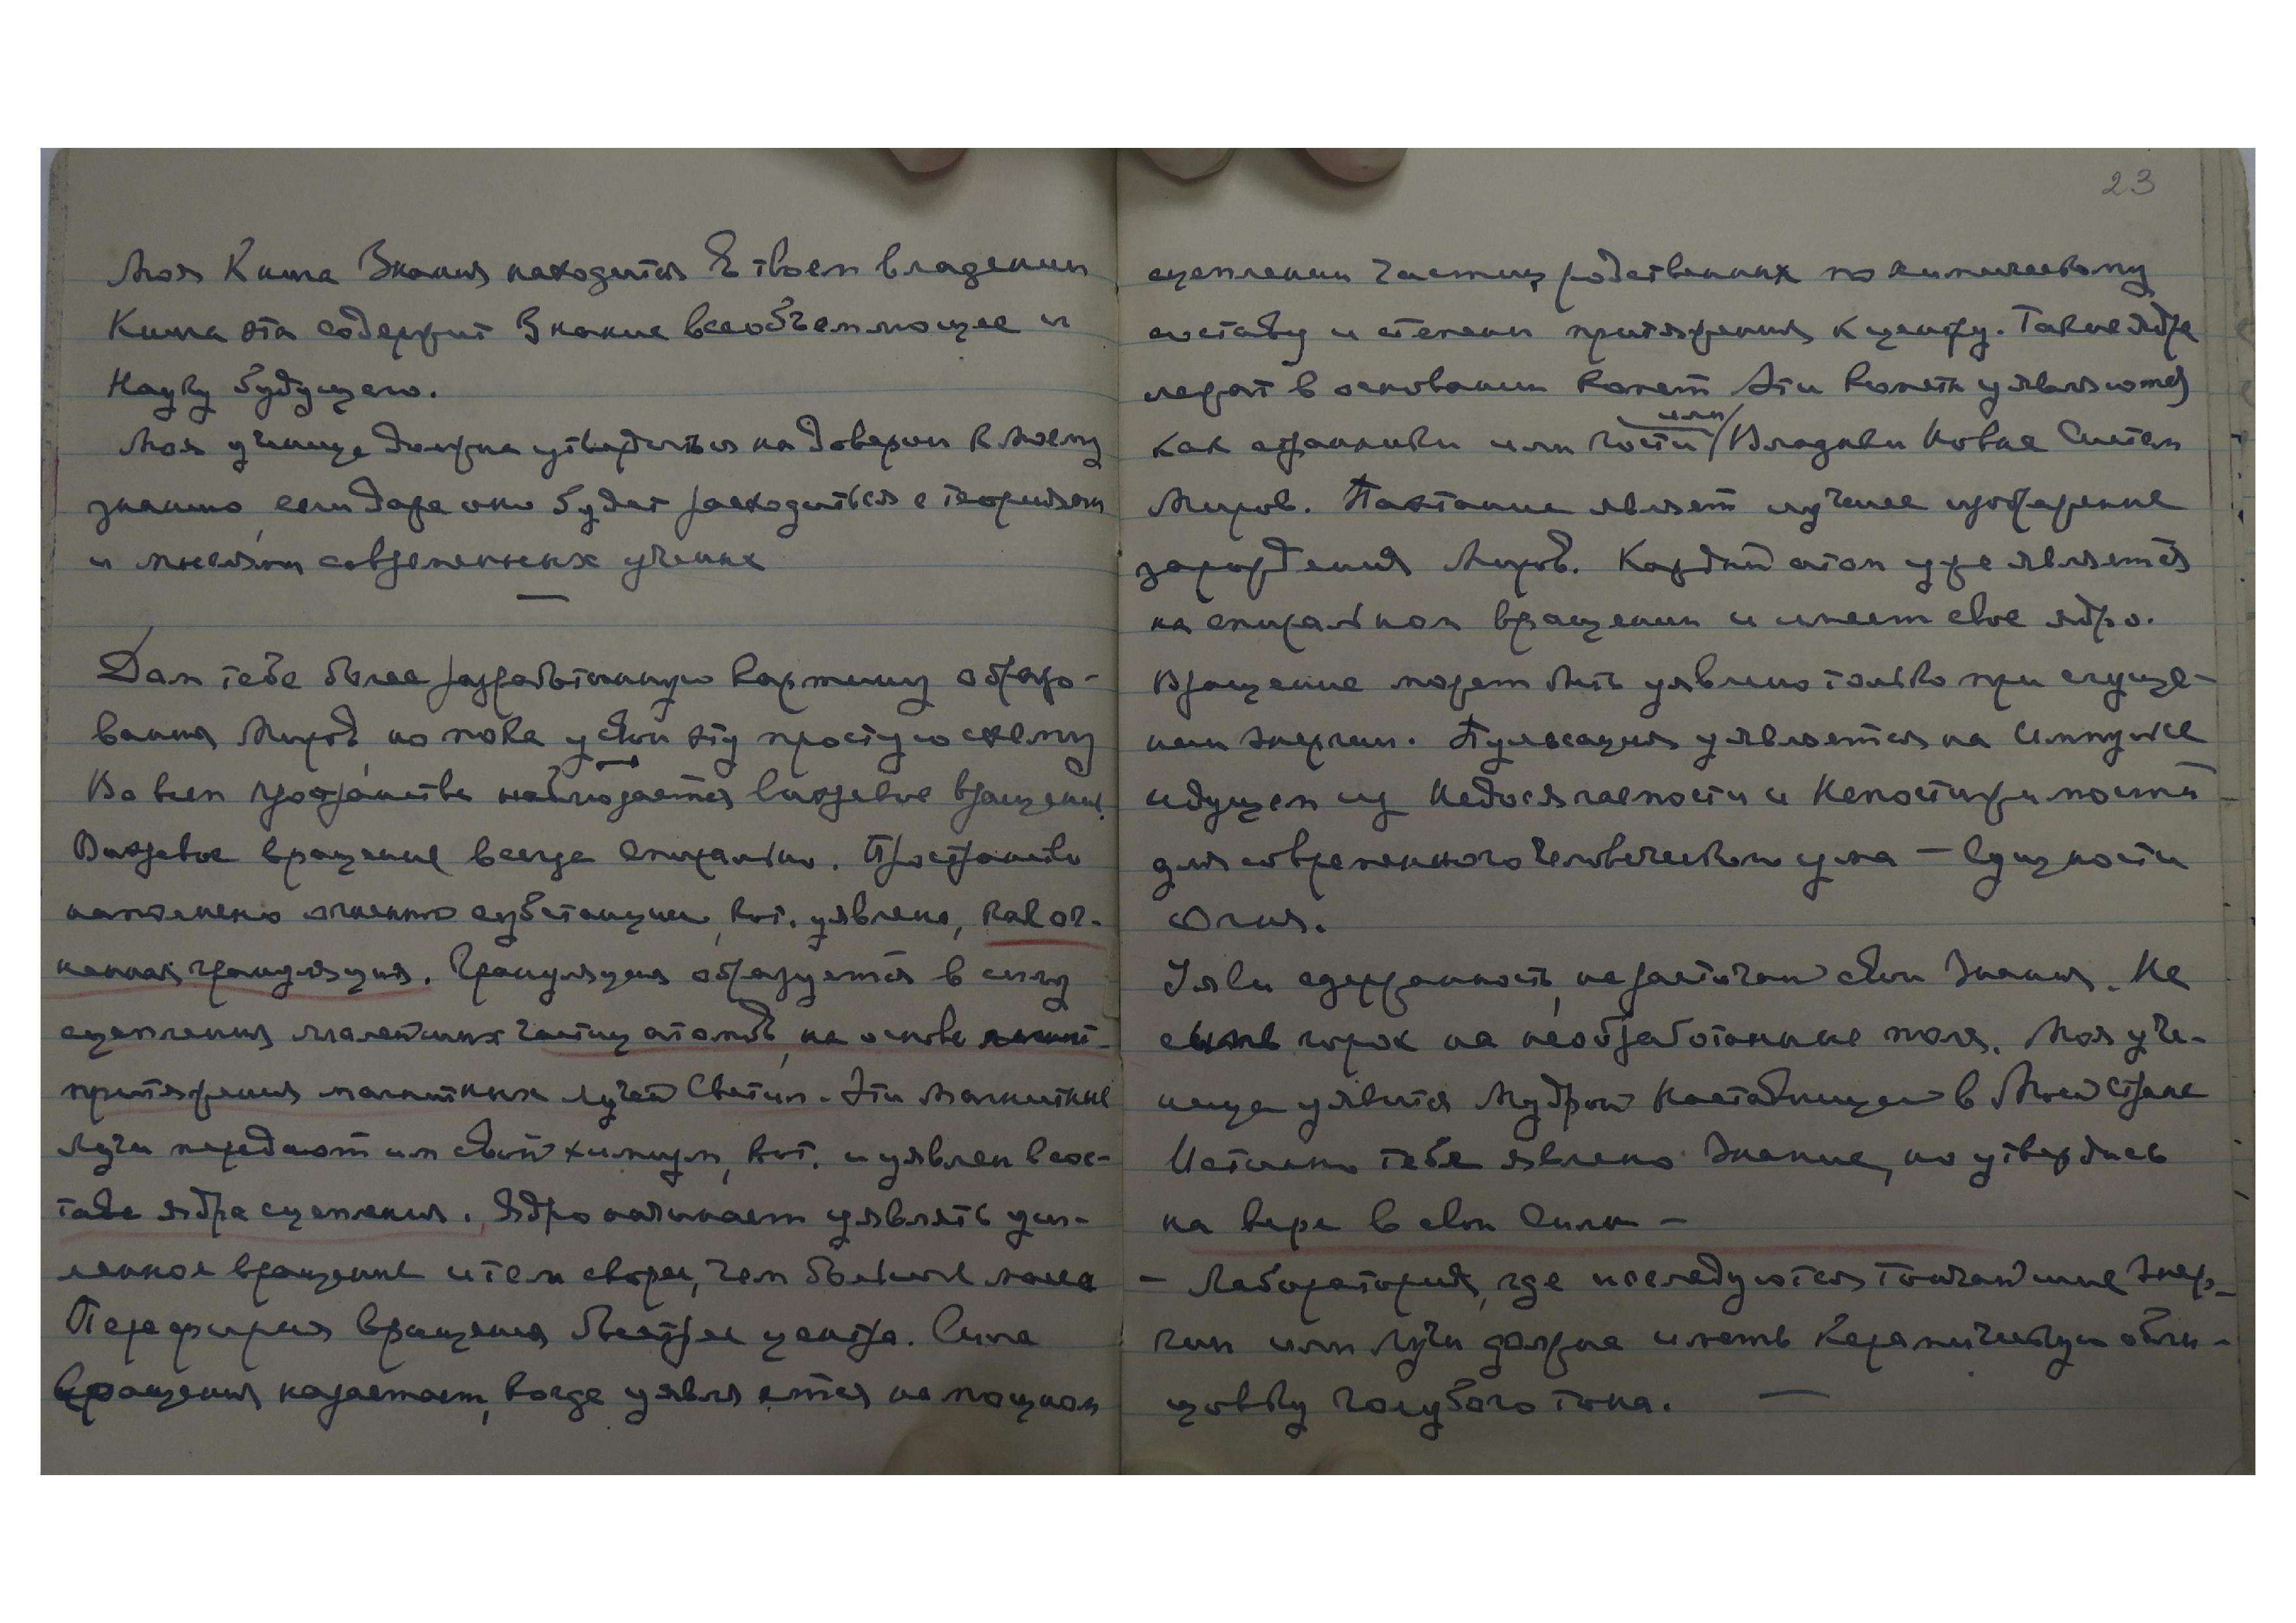 Моя Книга Знания находится в твоем владении
Книга эта содержит Знание всеобъемлющее и
Науку будущего.
Моя ученица должна утвердиться на доверии к Моему
знанию, если даже оно будет расходиться с теориями
и мыслями современных ученых
—
Дам тебе более разработанную картину образо-
вания Миров, но пока усвой эту простую схему
Во всем пространстве наблюдается вихревое вращение.
Вихревое вращение всегда спирально. Пространство
наполнено огненною субстанцией, кот. уявлена, как ог-
ненная грануляция. Грануляция образуется в силу
сцепления малейших частиц атомов, на основе
притяжения магнитных лучей Светил. Эти магнитные
Лучи передают им свой химизм, кот. и уявлен в сос-
таве ядра сцепления. Ядро начинает уявлять уси-
ленное вращение и тем скорее, чем больше масса
Переферия вращения быстрее центра. Сила
вращения нарастает, когда уявляется на мощном
23
сцеплении частиц, родственных по химическому
составу и степени притяжения к центру. Такие ядра
лежат в основании комет Эти кометы уявляются
как странники или гости / или / Владыки Новые Систем
Миров. Пахтание являет лучшее изображение
зарождения Миров. Каждый атом уже является
на спиральном вращении и имеет свое ядро.
Вращение может быть уявлено только при сгуще-
нии энергии. Пульсация уявляется на Импульсе
идущем из Недосягаемости и Непостижимости
для современного человеческого ума — Сущности
Огня.
Уяви сдержанность, не расточай свои Знания. Не
сыпь горох на необработанные поля. Моя уче-
ница уявится Мудрой Наставницей в Моей Стране
Истинно тебе явлено Знание, но утвердись
на вере в свои Силы —
— Лаборатория, где исследуются тончайшие Энер-
гии или Лучи должна иметь керамическую обли-
цовку голубого тона. —